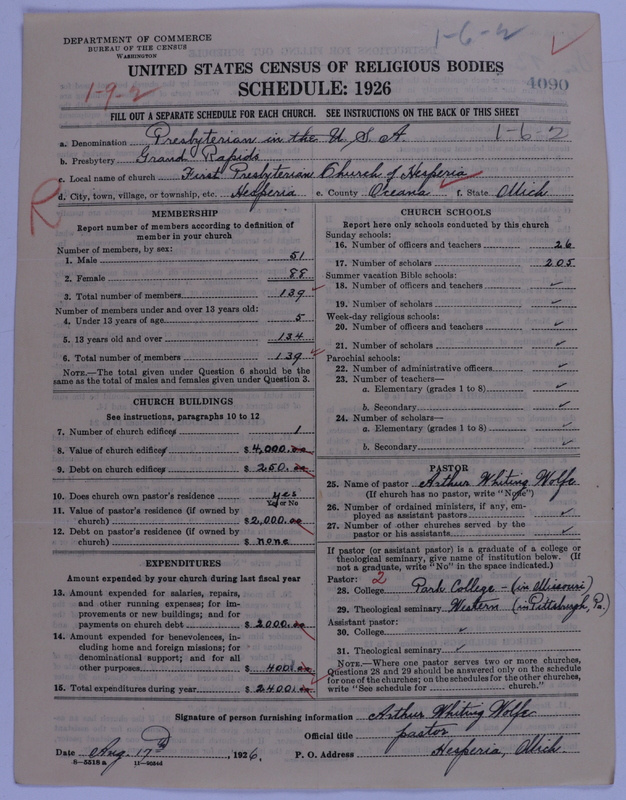 DEPARTMENT OF COMMERCE
BUREAU OF THE CENSUS
WASHINGTON
1-6-2
UNITED STATES CENSUS OF RELIGIOUS BODIES
SCHEDULE: 1926
4090
1-9-2
FILL OUT A SEPARATE SCHEDULE FOR EACH CHURCH. SEE INSTRUCTIONS ON THE BACK OF THIS SHEET
a. Denomination Presbyterian in the U.S.A. 1-6-2
b. Presbytery Grand Rapids
c. Local name of church First Presbyterian Church of Hesperia
d. City, town, village, or township, etc. Hesperia e. County Oceana f. State Mich
R
MEMBERSHIP
Report number of members according to definition of
member in your church
Number of members, by sex:
1. Male 51
2. Female 88
3. Total number of members 139
Number of members under and over 13 years old:
4. Under 13 years of age 5
5. 13 years old and over 134
6. Total number of members 139
NOTE.—The total given under Question 6 should be
same as the total of males and females given under Question 3.
CHURCH BUILDINGS
See instructions, paragraphs 10 to 12
7. Number of church edifices 1
8. Value of church edifices $4,000.00
9. Debt on church edifices $250.00
10. Does church own pastor's residence yes
Yes or No
11. Value of pastor's residence (if owned by
church) $2,000.00
12. Debt on pastor's residence (if owned by
church) $ none
EXPENDITURES
Amount expended by your church during last fiscal year
13. Amount expended for salaries, repairs,
and other running expenses; for im-
provements or new buildings; and for
payments on church debt $2000.00
14. Amount expended for benevolences, in-
cluding home and foreign missions; for
denominational support; and for all
other purposes $400.00
15. Total expenditures during year $2400.00
CHURCH SCHOOLS
Report here only schools conducted by this church
Sunday schools:
16. Number of officers and teachers 26
17. Number of scholars 205
Summer vacation Bible schools:
18. Number of officers and teachers ✓
19. Number of scholars ✓
Week-day religious schools:
20. Number of officers and teachers ✓
21. Number of scholars ✓
Parochial schools:
22. Number of administrative officers ✓
23. Number of teachers—
a. Elementary (grades 1 to 8) ✓
b. Secondary ✓
24. Number of scholars—
a. Elementary (grades 1 to 8) ✓
b. Secondary ✓
PASTOR
25. Name of pastor Arthur Whiting Wolfe
(If church has no pastor, write "None")
26. Number of ordained ministers, if any, em-
ployed as assistant pastors ✓
27. Number of other churches served by the
pastor or his assistants ✓
If pastor (or assistant pastor) is a graduate of a college or
theological seminary, give name of institution below. (If
not a graduate, write "No" in the space indicated.)
Pastor: 2
28. College Park College - (in Missouri)
29. Theological seminary Western (in Pittsburgh, Pa.)
Assistant pastor:
30. College ✓
31. Theological seminary ✓
NOTE.—Where one pastor serves two or more churches,
Questions 28 and 29 should be answered only on the schedule
for one of the churches; on the schedules for the other churches,
write "See schedule for church."
Signature of person furnishing information Arthur Whiting Wolfe
Official title pastor
Date Aug. 17th, 1926. P. O. Address Hesperia, Mich.
8—5518 a